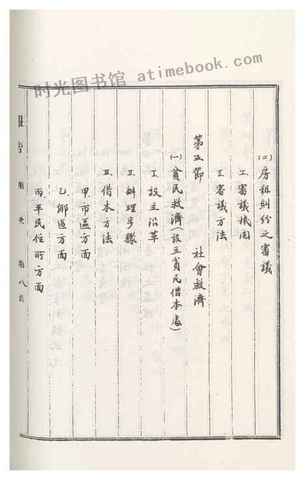 时光图书馆 atimebook.com
(二)房租糾紛之審議
1.審議機関
2.審議方法
第五節 社會救濟
(一)貧民救濟(設立貧民借本處)
1.設立沿革
2.辦理手續
3.借本方法
甲市區方面
乙鄉區方面
丙平民住所方面